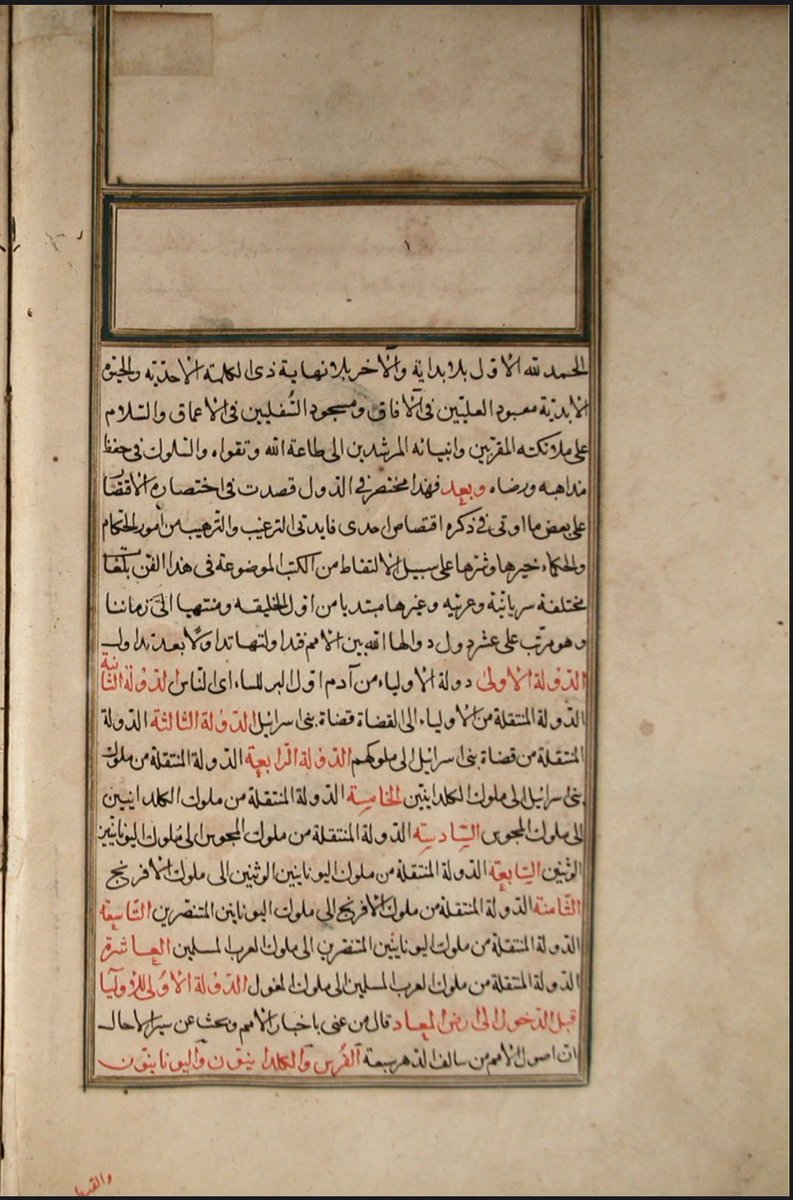 الحمد لله الاول بلا بداية والآخر بلا نهاية ذى الكلمة الاحدية والحيوة
الابدية معبود العليين فى الآفاق ومسجود السُفليين فى الاعماق والسلام
على ملائكته المقربين وانبيائه المرشدين الى طاعة الله وتقواه والسلوك فى حفظ
مذاهبه ورضاه وبعد فهذا مختصر فى الدول قصدت فى اختصاره الاقتصار
على بعض ما اوتى فى ذكره اقتصاص احدى فايدتى الترغيب والترهيب من أمور الحكام
والحكماء خيرها وشرها على سبيل الالتقاط من الكتب الموضوعة فى هذا الفن بلغات
مختلفة سريانية وعربية وغيرها مبتديا من اول الخليقه ومنتهيا الى زماننا
وهو مرتب على عشر دول داولها الله بين الامم فتداولتها تداولا بعد تداول
الدولة الاولى دولة الاولياء من آدم اول البرنساء اى الناس الدولة الثانية
الدولة المنتقلة من الاولياء الى القضاة قضاة بنى اسرائيل الدولة الثالثة الدولة
المنتقلة من قضاة بنى اسرائيل الى ملوكهم الدولة الرابعة الدولة المنتقلة من ملوك
بنى اسرائيل الى ملوك الكلدانيين الخامسة الدولة المنتقلة من ملوك الكلدانيين
الى ملوك المجوس السادسة الدولة المنتقلة من ملوك المجوس الى ملوك اليونانيين
الوثنيين السابعة الدولة المنتقلة من ملوك اليونانيين الوثنين الى ملوك الافرنج
الثامنة الدولة المنتقلة من ملوك الافرنج الى ملوك اليونانين المتنصرين التاسعة
الدولة المنتقلة من ملوك اليونانيين المتنصرين الى ملوك العرب المسلمين العاشرة
الدولة المنتقلة من ملوك العرب المسلمين الى ملوك المغول الدولة الاولى للاوليآ
قبل الدخول الى ارض المعاد قال من عنى باخبار الامم وبحث عن سير الاجال
ان اصول الامم من سالف الدهر سبعة الفرس والكلدانيون واليونانيون
والقبط